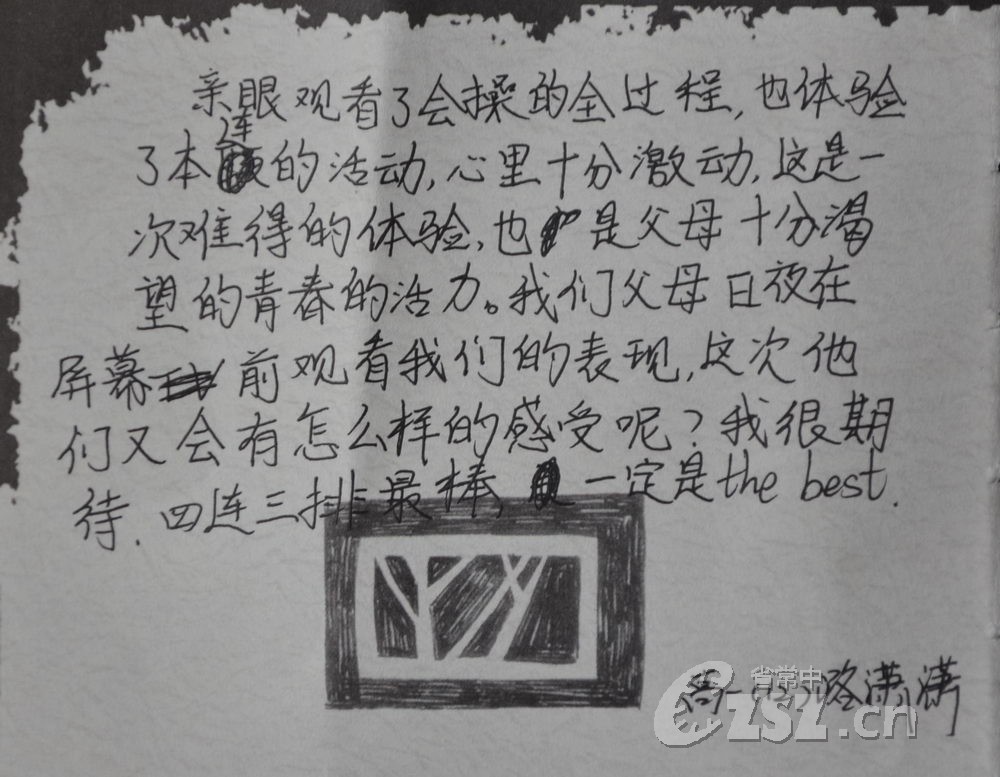 亲眼观看了会操的全过程,也体验
了本连的活动,心里十分激动,这是一
次难得的体验,也是父母十分渴
望的青春的活力。我们父母日夜在
屏幕前观看我们的表现,这次他
们又会有怎么样的感受呢?我很期
待.四连三排最棒,一定是the best.
路潇潇
省常中
CZSZ.cn